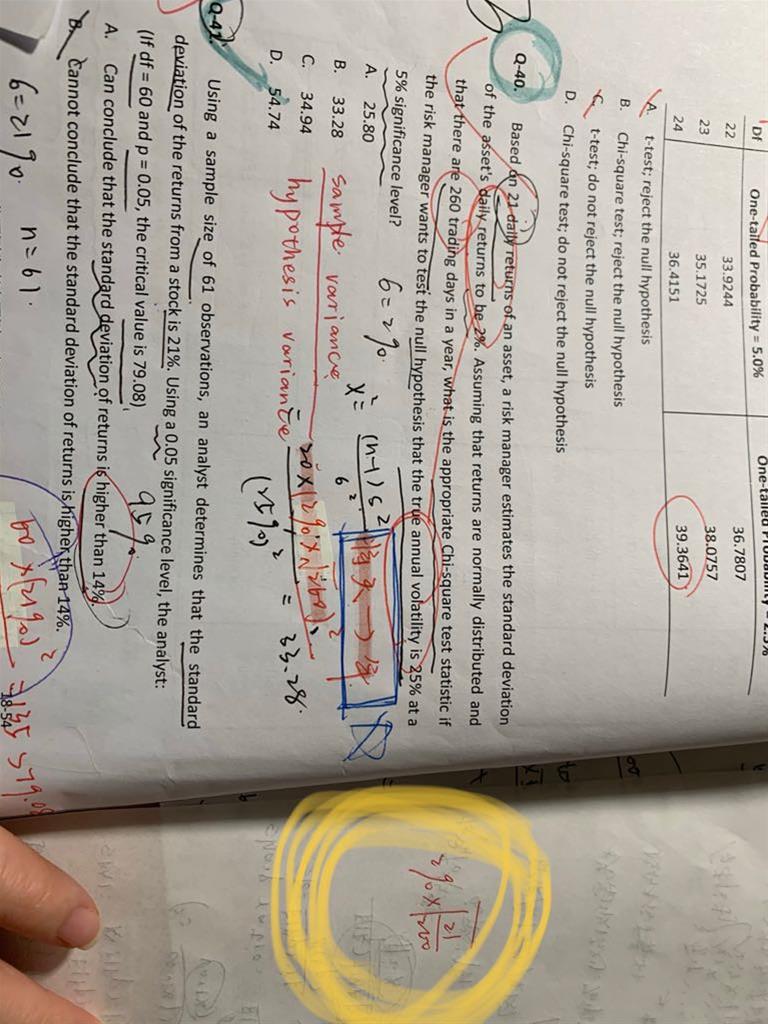 Df One-tailed Probability = 5.0% One-tailed Probability = 2.5%
22 33.9244 36.7807
23 35.1725 38.0757
24 36.4151 39.3641
A. t-test; reject the null hypothesis
B. Chi-square test; reject the null hypothesis
C. t-test; do not reject the null hypothesis
D. Chi-square test; do not reject the null hypothesis
Q-40. Based on 21 daily returns of an asset, a risk manager estimates the standard deviation
of the asset's daily returns to be 2%. Assuming that returns are normally distributed and
that there are 260 trading days in a year, what is the appropriate Chi-square test statistic if
the risk manager wants to test the null hypothesis that the true annual volatility is 25% at a
5% significance level?
A. 25.80
B. 33.28
C. 34.94
D. 54.74
6=2%.
x² = (n-1)s²
6²
sample variance
hypothesis variance
= 20×(2%×√260)²
(25%)²
= 33.28.
Q-41. Using a sample size of 61 observations, an analyst determines that the standard
deviation of the returns from a stock is 21%. Using a 0.05 significance level, the analyst:
(If df = 60 and p = 0.05, the critical value is 79.08)
95%
A. Can conclude that the standard deviation of returns is higher than 14%.
B. Cannot conclude that the standard deviation of returns is higher than 14%.
6=21%. n=61.
60×(21%)² = 135 >79.08
18-54